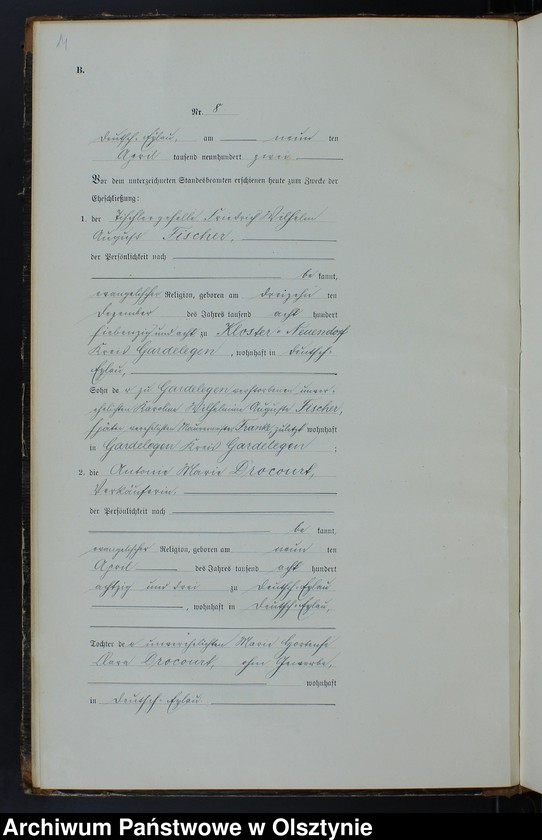 B.
Nr. 8
Deutsch-Eylau, am neun ten
April tausend neunhundert zwei
Vor dem unterzeichneten Standesbeamten erschienen heute zum Zwecke der
Eheschließung:
1. der Tischlergeselle Friedrich Wilhelm
August Fischer,
der Persönlichkeit nach
be kannt,
evangelischer Religion, geboren am dreizehn ten
Dezember des Jahres tausend acht hundert
siebenzig und acht zu Kloster-Neuendorf
Kreis Gardelegen, wohnhaft in Deutsch-
Eylau,
Sohn de r zu Gardelegen verstorbenen unver-
ehelichten Karoline Wilhelmine Auguste Fischer,
später verehelichten Maurer Frank, zuletzt wohnhaft
in Gardelegen Kreis Gardelegen ;
2. die Antonie Marie Drocourt,
Verkäuferin.
der Persönlichkeit nach
be kannt,
evangelischer Religion, geboren am neun ten
April des Jahres tausend acht hundert
achtzig und drei zu Deutsch-Eylau
, wohnhaft in Deutsch-Eylau,
Tochter de r unverehelichten Marie Hortense
Clara Drocourt, ohne Gewerbe,
wohnhaft
in Deutsch-Eylau
Archiwum Państwowe w Olsztynie